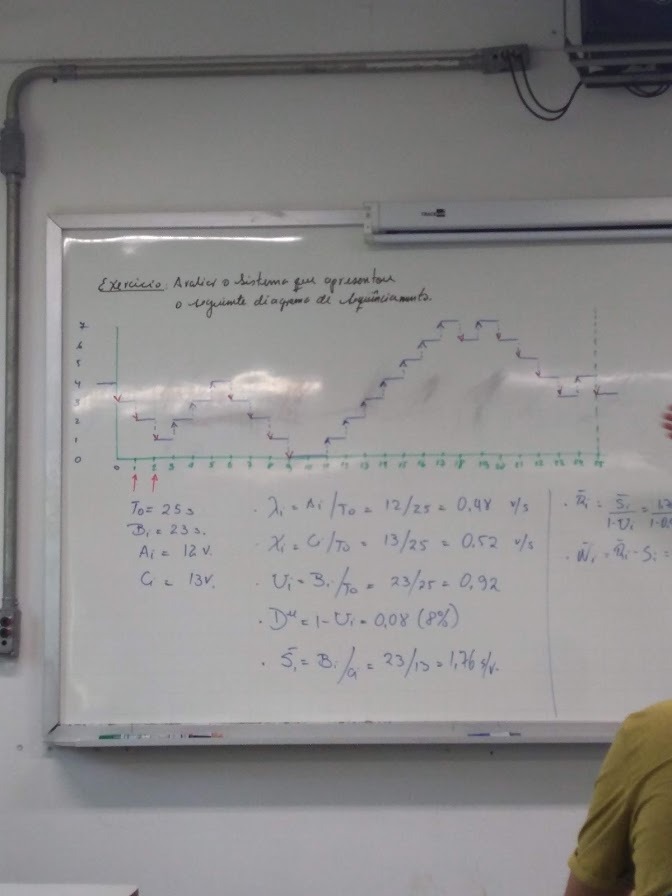 Exercício: Avaliar o sistema que apresentou
o seguinte diagrama de sequênciamento.
7
6
5
4
3
2
1
0
0 1 2 3 4 5 6 7 8 9 10 11 12 13 14 15 16 17 18 19 20 21 22 23 24 25
T0 = 25 s
Bi = 23 s.
Ai = 12 v.
Ci = 13v.
. λi = Ai / T0 = 12/25 = 0,48 v/s
. Xi = Ci / T0 = 13/25 = 0,52 v/s
. Ui = Bi / T0 = 23/25 = 0,92
. Dᵘ = 1 - Ui = 0,08 (8%)
. S̄i = Bi / Ci = 23/13 = 1,76 s/v.
. R̄i = S̄i / 1-Ui =
. W̄i = R̄i - Si =